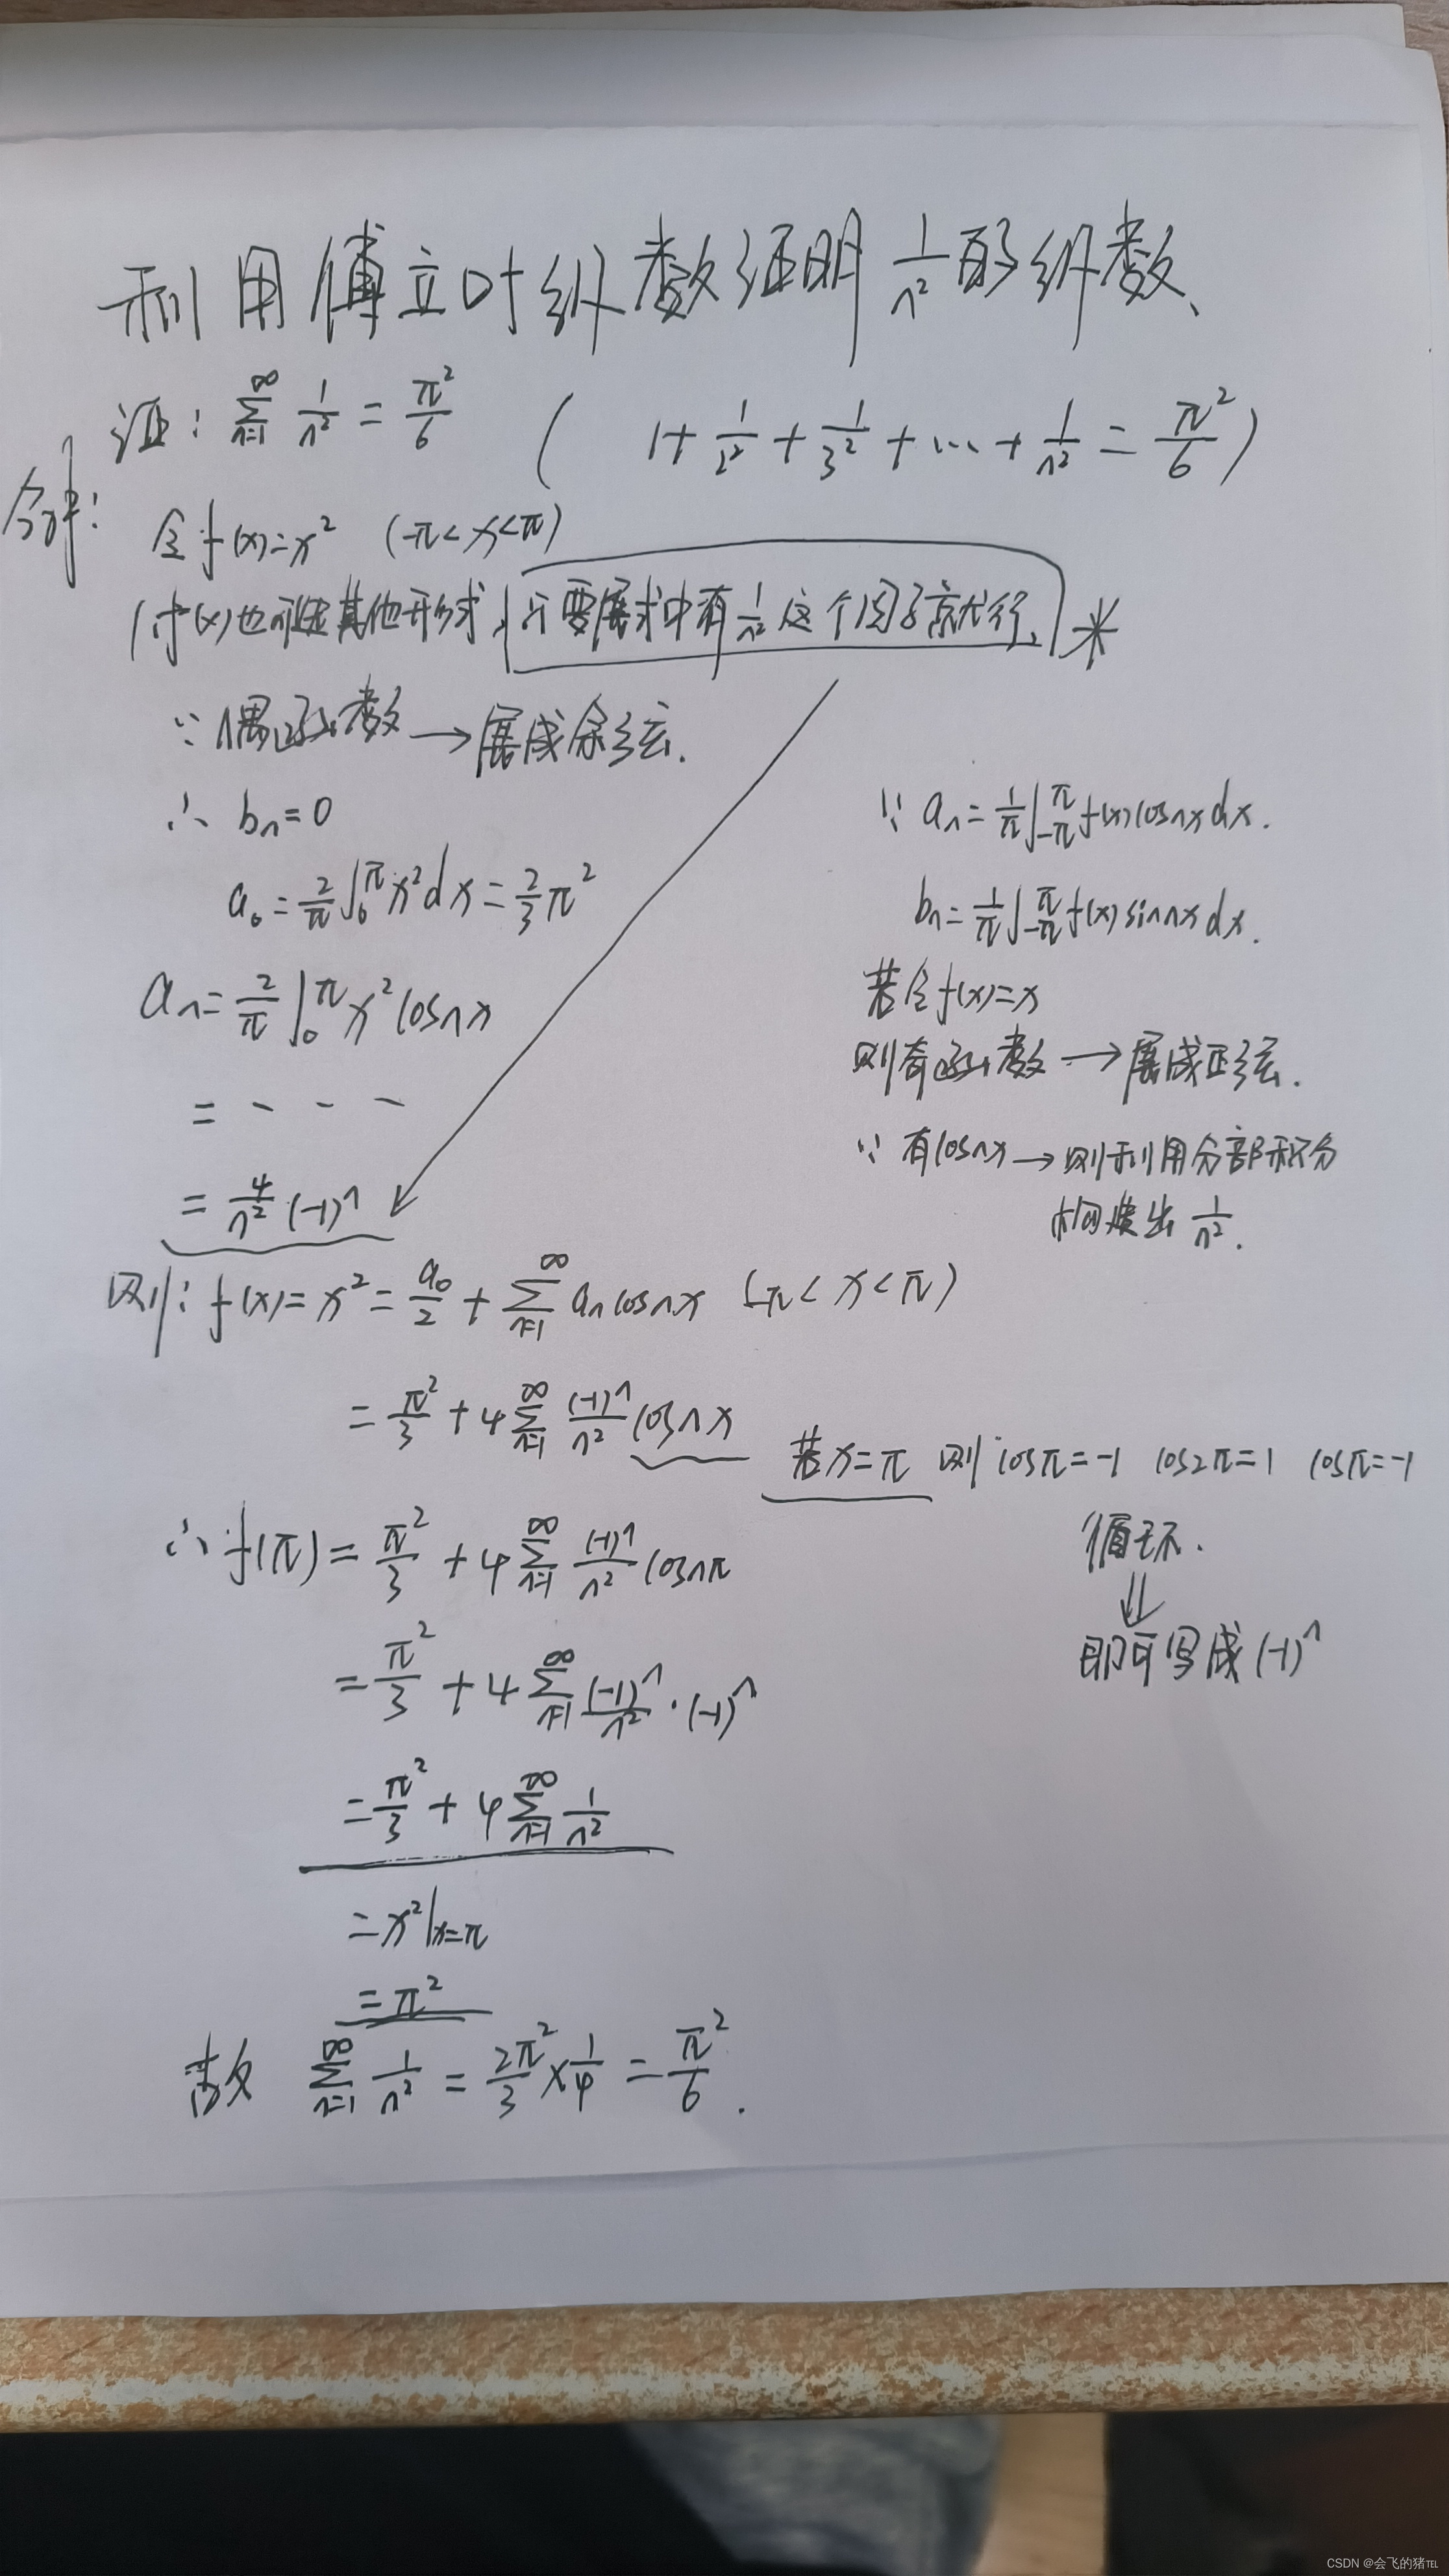 利用傅立叶级数证明 1/n² 的级数、
证: ∑_{n=1}^{∞} 1/n² = π²/6 ( 1 + 1/2² + 1/3² + … + 1/n² = π²/6 )
解:
令 f(x)=x² (-π<x<π)
(f(x)也可是其他形式,只要展式中有 1/n² 这个因子就行、 *
∵ 偶函数 → 展成余弦.
∴ bn=0
a₀ = 2/π ∫₀^π x² dx = 2/3 π²
an = 2/π ∫₀^π x² cosnx
= - - -
= 4/n² · (-1)^n
∵ an = 1/π ∫_{-π}^{π} f(x) cosnx dx.
bn = 1/π ∫_{-π}^{π} f(x) sinnx dx.
若令 f(x)=x
则奇函数 → 展成正弦.
∵ 有cosnx → 则利用分部积分
出 1/n².
则: f(x) = x² = a₀/2 + ∑_{n=1}^{∞} an cosnx (-π < x < π)
= π²/3 + 4 ∑_{n=1}^{∞} (-1)^n/n² cosnx
若x=π 则 cosπ=-1 cos2π=1 cosπ=-1
循环.
⇓
即可写成 (-1)^n
∴ f(π) = π²/3 + 4 ∑_{n=1}^{∞} (-1)^n/n² cosnπ
= π²/3 + 4 ∑_{n=1}^{∞} (-1)^n/n² · (-1)^n
= π²/3 + 4 ∑_{n=1}^{∞} 1/n²
= x²|x=π
= π²
故 ∑_{n=1}^{∞} 1/n² = 2π²/3 × 1/4 = π²/6 .
CSDN @会飞的猪℡